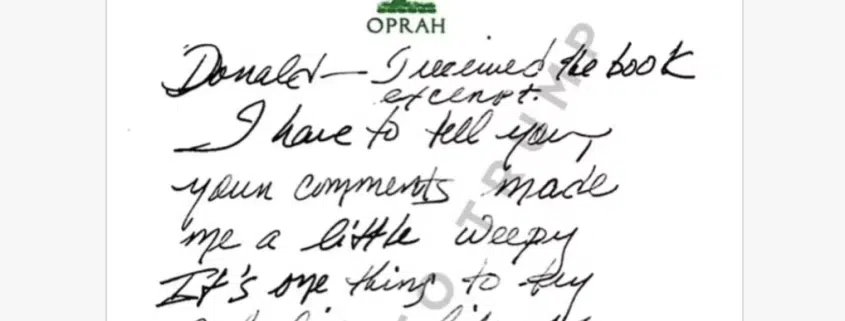 OPRAH
Donald — I received the book
excerpt.
I have to tell you,
your comments made
me a little weepy
It's one thing to try
TO TRUMP